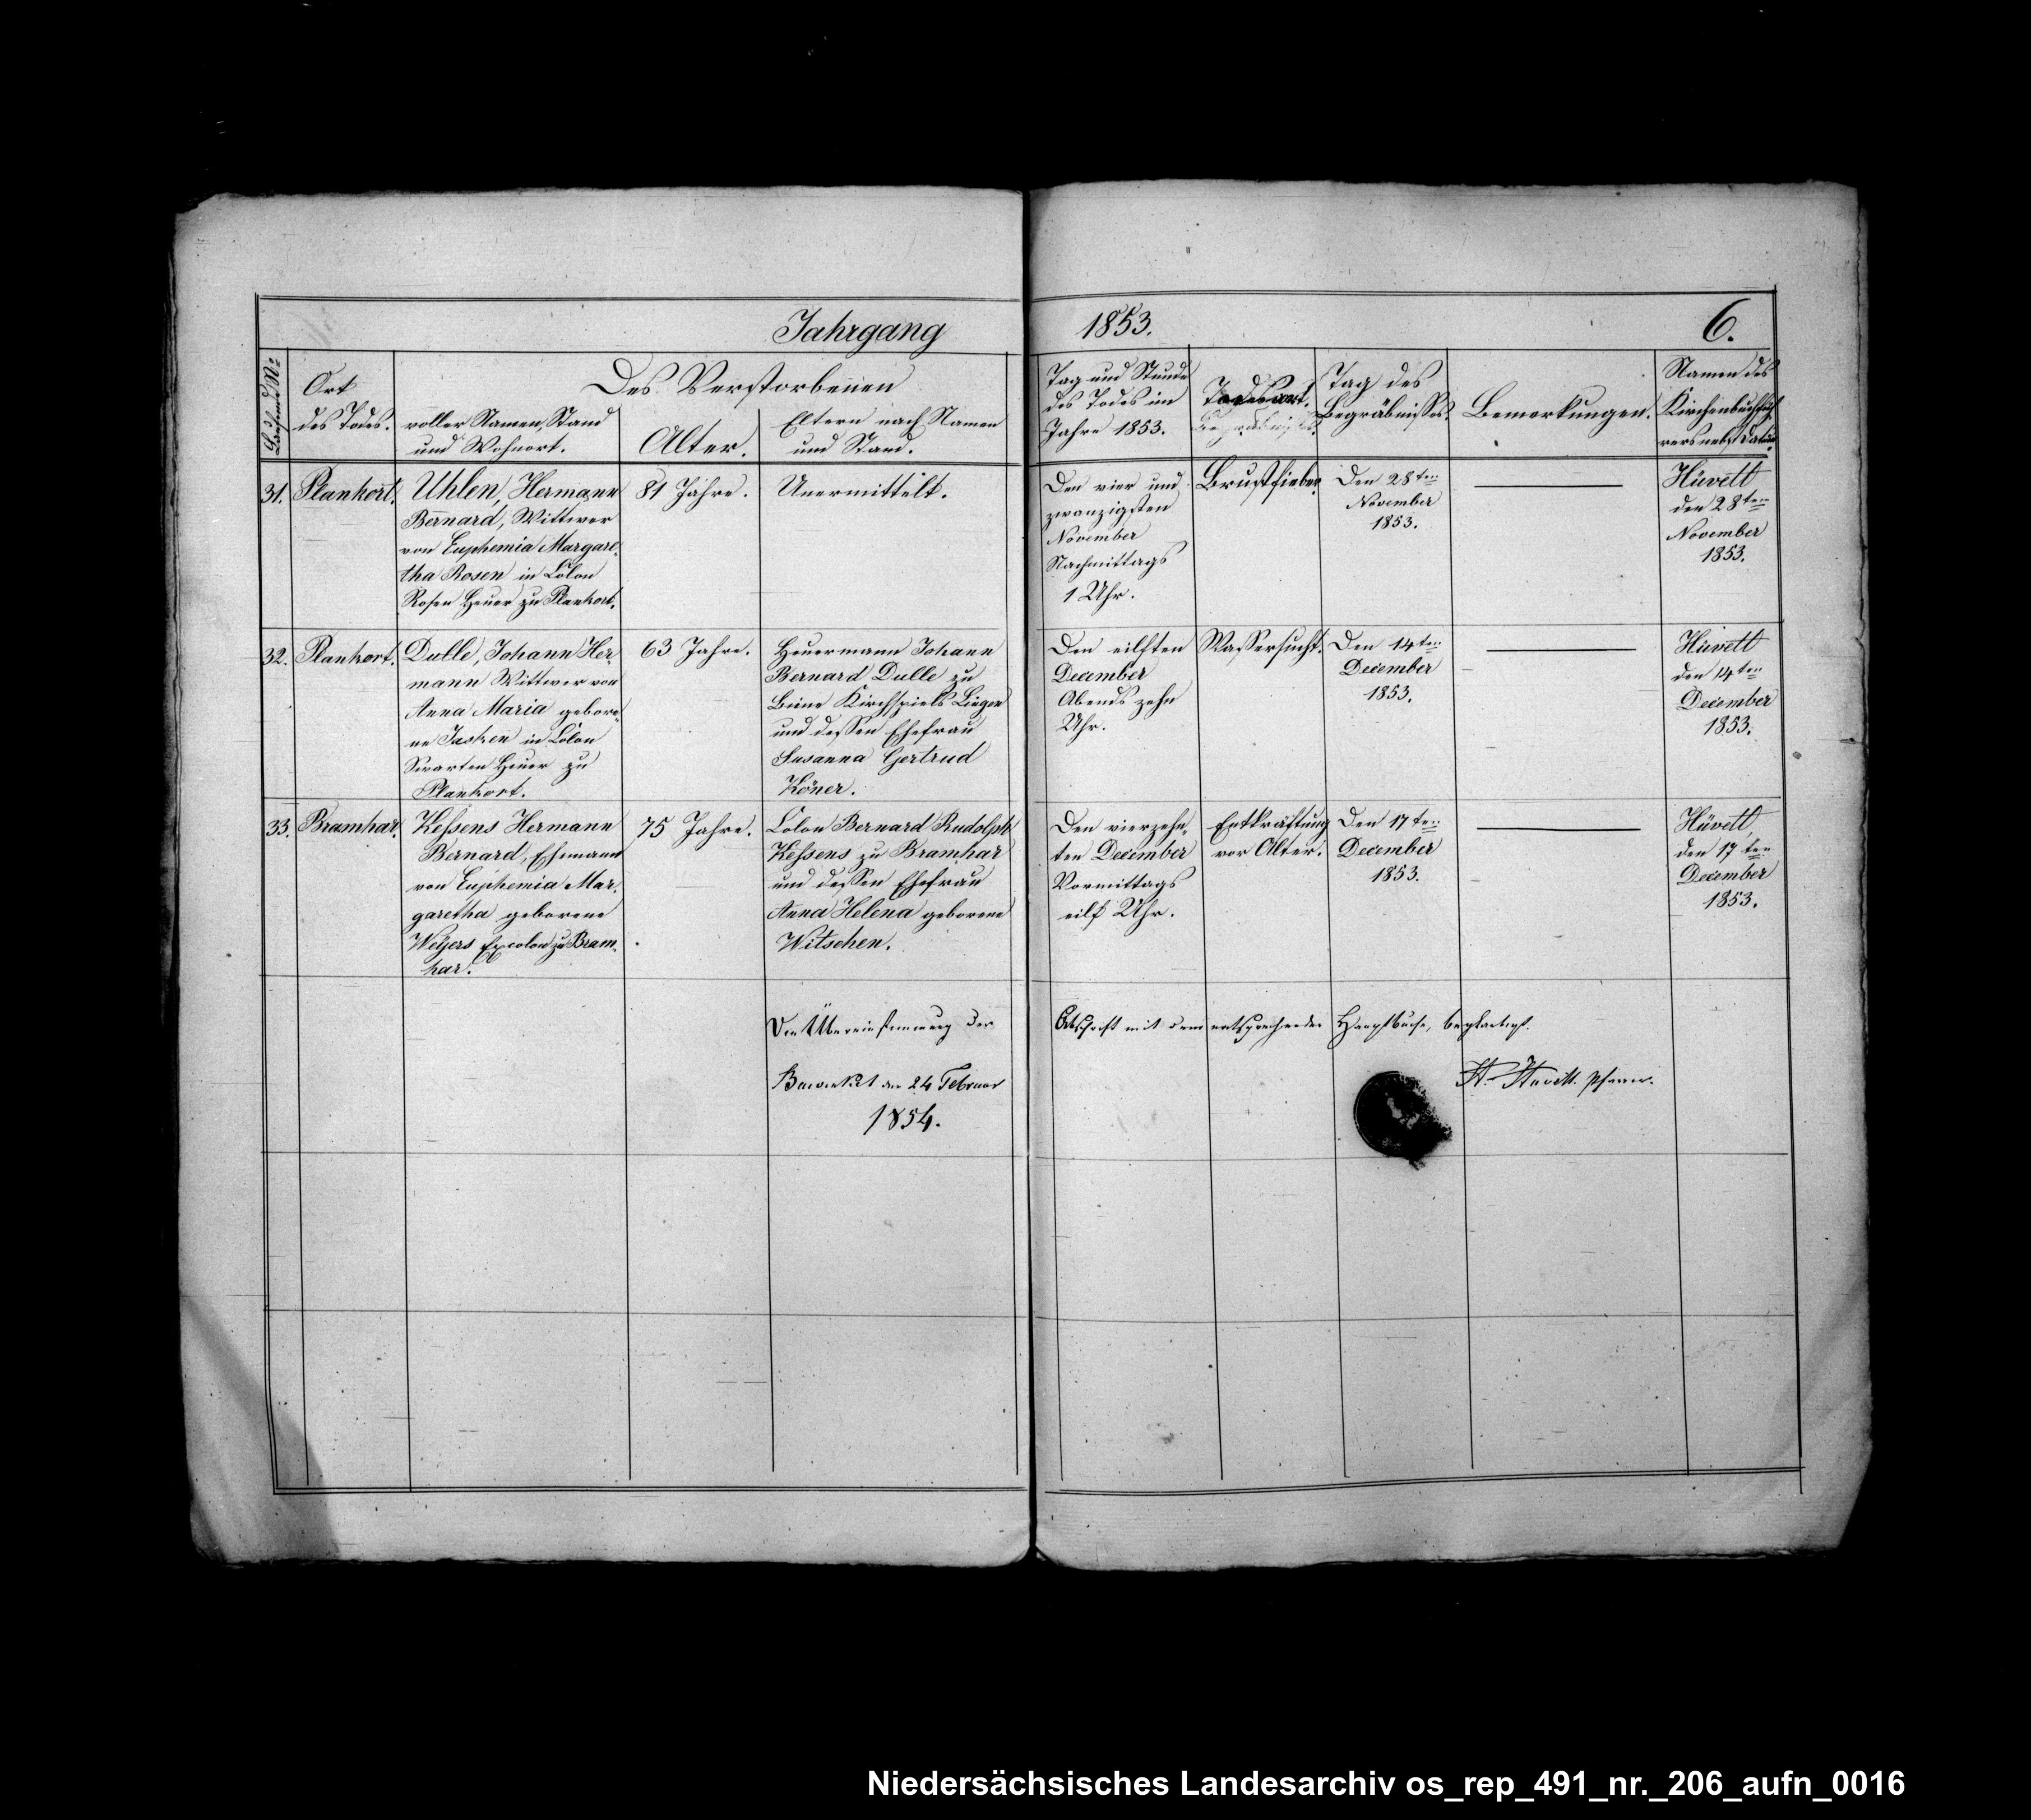 Jahrgang 1853. 6.
Laufende Nr.
Ort
des Todes.
Des Verstorbenen
voller Namen, Stand
und Wohnort.
Alter.
Eltern nach Namen
und Stand.
Tag und Stunde
des Todes im
Jahre 1853.
Todesart.
Tag des
Begräbnisses.
Bemerkungen.
Namen des
Kirchenbuchfüh
rers nebst Datum.
31.
Plankort.
Uhlen, Hermann
Bernard, Wittwer
von Euphemia Margare-
tha Rosen in Colon
Rosen Heuer zu Plankort.
81 Jahre.
Unermittelt.
Den vier und
zwanzigsten
November
Nachmittags
1 Uhr.
Brustfieber.
Den 28ten
November
1853.
Hüvett
den 28ten
November
1853.
32.
Plankort.
Dulle, Johann Her-
mann Wittwer von
Anna Maria gebore-
ne Jasken in Colon
Swarten Heuer zu
Plankort.
63 Jahre.
Heuermann Johann
Bernard Dulle zu
Biene Kirchspiels Lingen
und dessen Ehefrau
Susanna Gertrud
Köner.
Den eilften
December
Abends zehn
Uhr.
Wassersucht.
Den 14ten
December
1853.
Hüvett
den 14ten
December
1853.
33.
Bramhar.
Kessens Hermann
Bernard, Ehemann
von Euphemia Mar-
garetha geborene
Weljers Excolon zu Bram-
har.
75 Jahre.
Colon Bernard Rudolph
Kessens zu Bramhar
und dessen Ehefrau
Anna Helena geborene
Witschen.
Den vierzehn-
ten December
Vormittags
eilf Uhr.
Entkräftung
vor Alter.
Den 17ten
December
1853.
Hüvett,
den 17ten
December
1853.
Die Übereinstimmung der Abschrift mit dem entsprechenden Hauptbuche, beglaubigt.
Bawinkel den 24 Februar
1854.
H. Hüvett. Pfarrer.
Niedersächsisches Landesarchiv os_rep_491_nr._206_aufn_0016